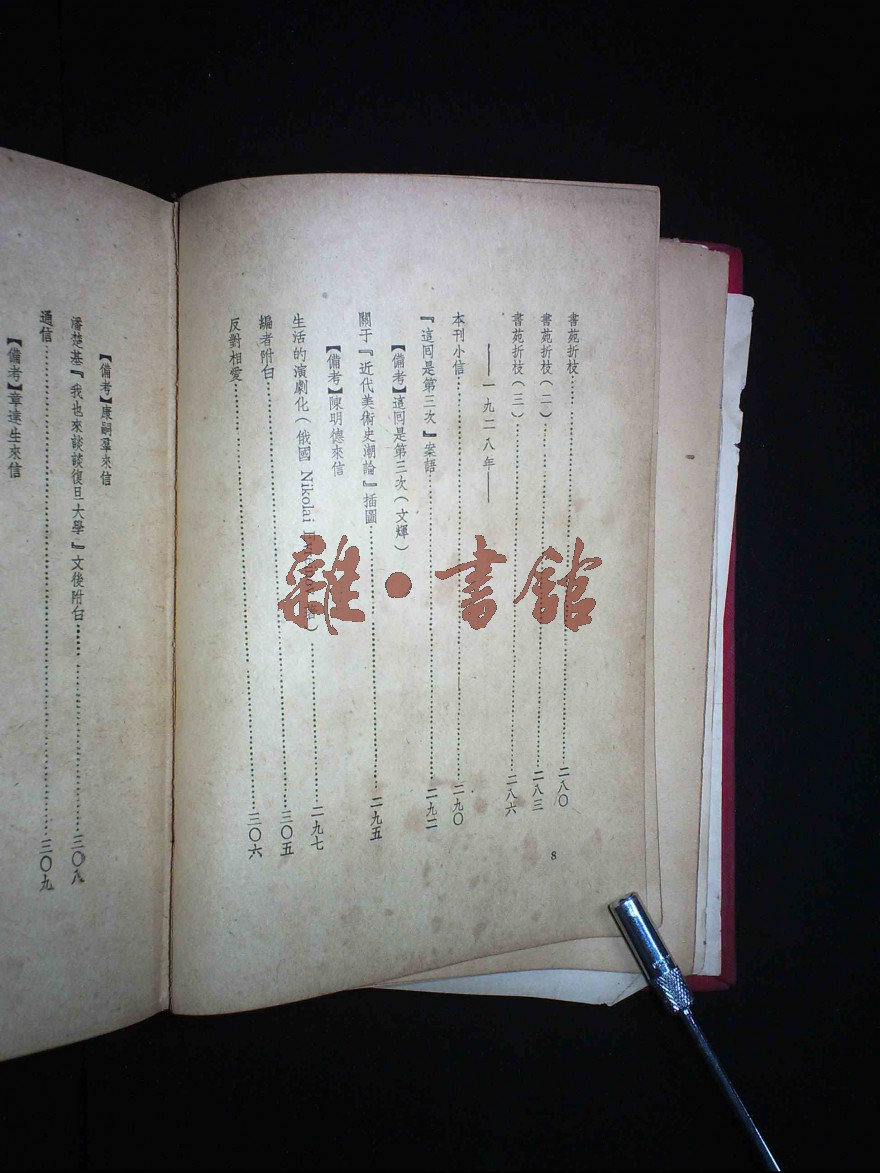 書苑折枝……二八〇
書苑折枝（二）……二八三
書苑折枝（三）……二八六
——一九二八年——
本刊小信……二九〇
『這回是第三次』案語……二九二
【備考】這回是第三次（文輝）
關于『近代美術史潮論』插圖……二九五
【備考】陳明德來信
生活的演劇化（俄國 Nikolai）……二九七
編者附白……三〇五
反對相愛……三〇六
8
【備考】康嗣羣來信
潘楚基『我也來談談復旦大學』文後附白……三〇八
通信……三〇九
【備考】章達生來信
雜·書館